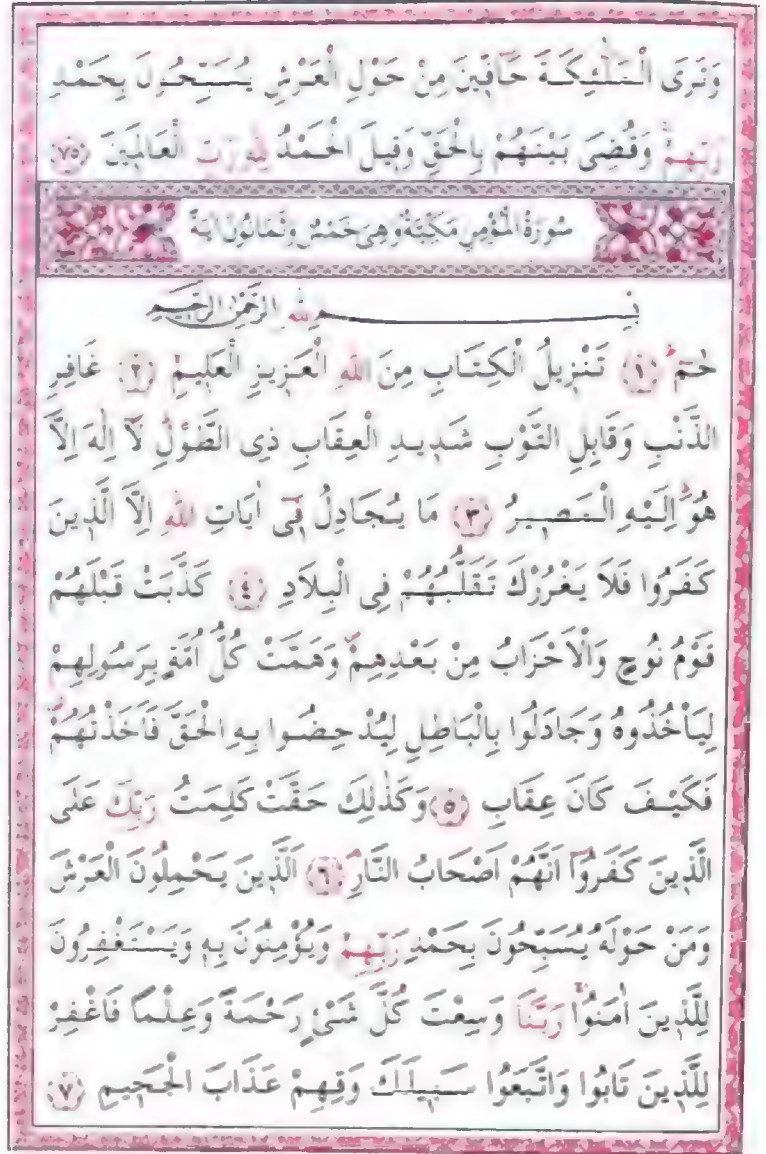 وَتَرَى الْمَلٰٓئِكَةَ حَٓافّ۪ينَ مِنْ حَوْلِ الْعَرْشِ يُسَبِّحُونَ بِحَمْدِ
رَبِّهِمْۚ وَقُضِىَ بَيْنَهُمْ بِالْحَقِّ وَق۪يلَ الْحَمْدُ لِلّٰهِ رَبِّ الْعَالَم۪ينَ ﴿٧٥﴾
سُورَةُ الْمُؤْمِنِ مَكِّيَّةٌ وَهِىَ خَمْسٌ وَثَمَانُونَ اٰيَةً
بِسْمِ اللّٰهِ الرَّحْمٰنِ الرَّح۪يمِ
حٰمٓۚ ﴿١﴾ تَنْز۪يلُ الْكِتَابِ مِنَ اللّٰهِ الْعَز۪يزِ الْعَل۪يمِۙ ﴿٢﴾ غَافِرِ
الذَّنْبِ وَقَابِلِ التَّوْبِ شَد۪يدِ الْعِقَابِ ذِى الطَّوْلِۜ لَٓا اِلٰهَ اِلَّا
هُوَۜ اِلَيْهِ الْمَص۪يرُ ﴿٣﴾ مَا يُجَادِلُ ف۪ٓى اٰيَاتِ اللّٰهِ اِلَّا الَّذ۪ينَ
كَفَرُوا فَلَا يَغْرُرْكَ تَقَلُّبُهُمْ فِى الْبِلَادِ ﴿٤﴾ كَذَّبَتْ قَبْلَهُمْ
قَوْمُ نُوحٍ وَالْاَحْزَابُ مِنْ بَعْدِهِمْۖ وَهَمَّتْ كُلُّ اُمَّةٍ بِرَسُولِهِمْ
لِيَأْخُذُوهُ وَجَادَلُوا بِالْبَاطِلِ لِيُدْحِضُوا بِهِ الْحَقَّ فَاَخَذْتُهُمْ۠
فَكَيْفَ كَانَ عِقَابِ ﴿٥﴾ وَكَذٰلِكَ حَقَّتْ كَلِمَتُ رَبِّكَ عَلَى
الَّذ۪ينَ كَفَرُٓوا اَنَّهُمْ اَصْحَابُ النَّارِۢ ﴿٦﴾ اَلَّذ۪ينَ يَحْمِلُونَ الْعَرْشَ
وَمَنْ حَوْلَهُ يُسَبِّحُونَ بِحَمْدِ رَبِّهِمْ وَيُؤْمِنُونَ بِه۪ وَيَسْتَغْفِرُونَ
لِلَّذ۪ينَ اٰمَنُواۚ رَبَّنَا وَسِعْتَ كُلَّ شَىْءٍ رَحْمَةً وَعِلْمًا فَاغْفِرْ
لِلَّذ۪ينَ تَابُوا وَاتَّبَعُوا سَب۪يلَكَ وَقِهِمْ عَذَابَ الْجَح۪يمِ ﴿٧﴾